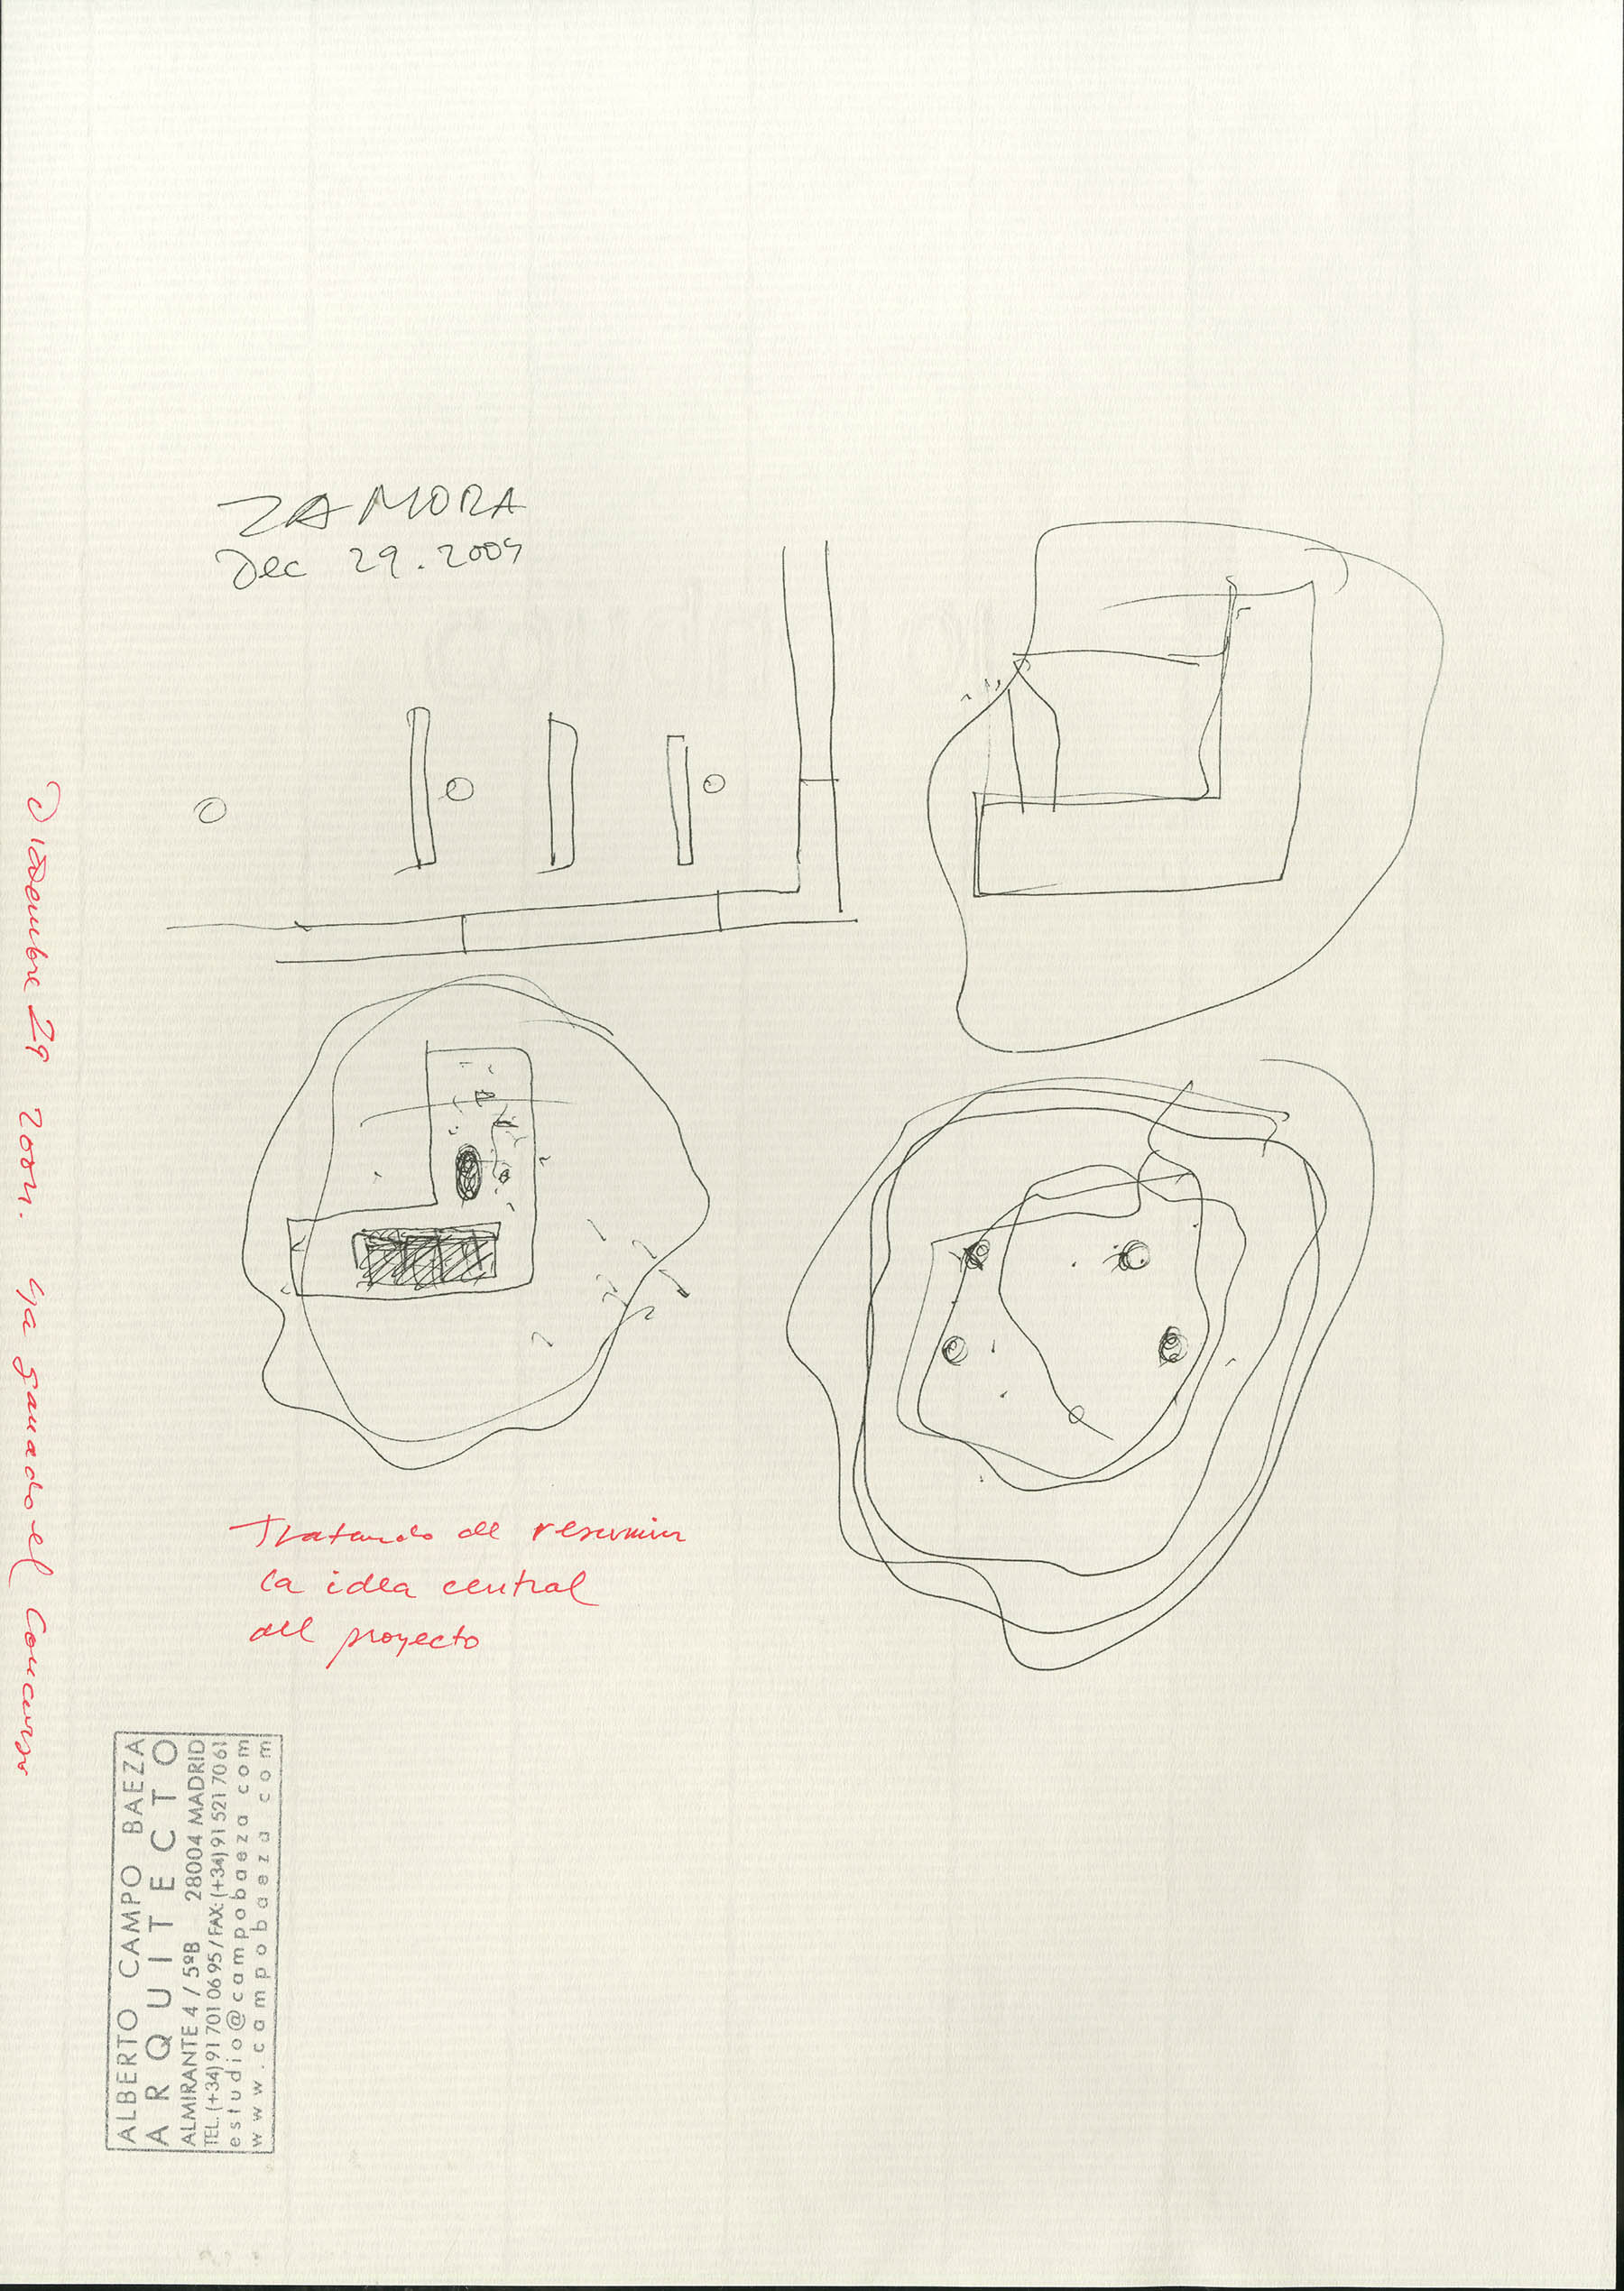 ZAMORA
Dec 29. 2004
Diciembre 29 2004. ya ganado el Concurso
Tratando de resumir
la idea central
del proyecto
ALBERTO CAMPO BAEZA
ARQUITECTO
ALMIRANTE 4 / 5ºB 28004 MADRID
TEL. (+34) 91 701 06 95 / FAX: (+34) 91 521 70 61
estudio@campobaeza com
www.campobaeza com